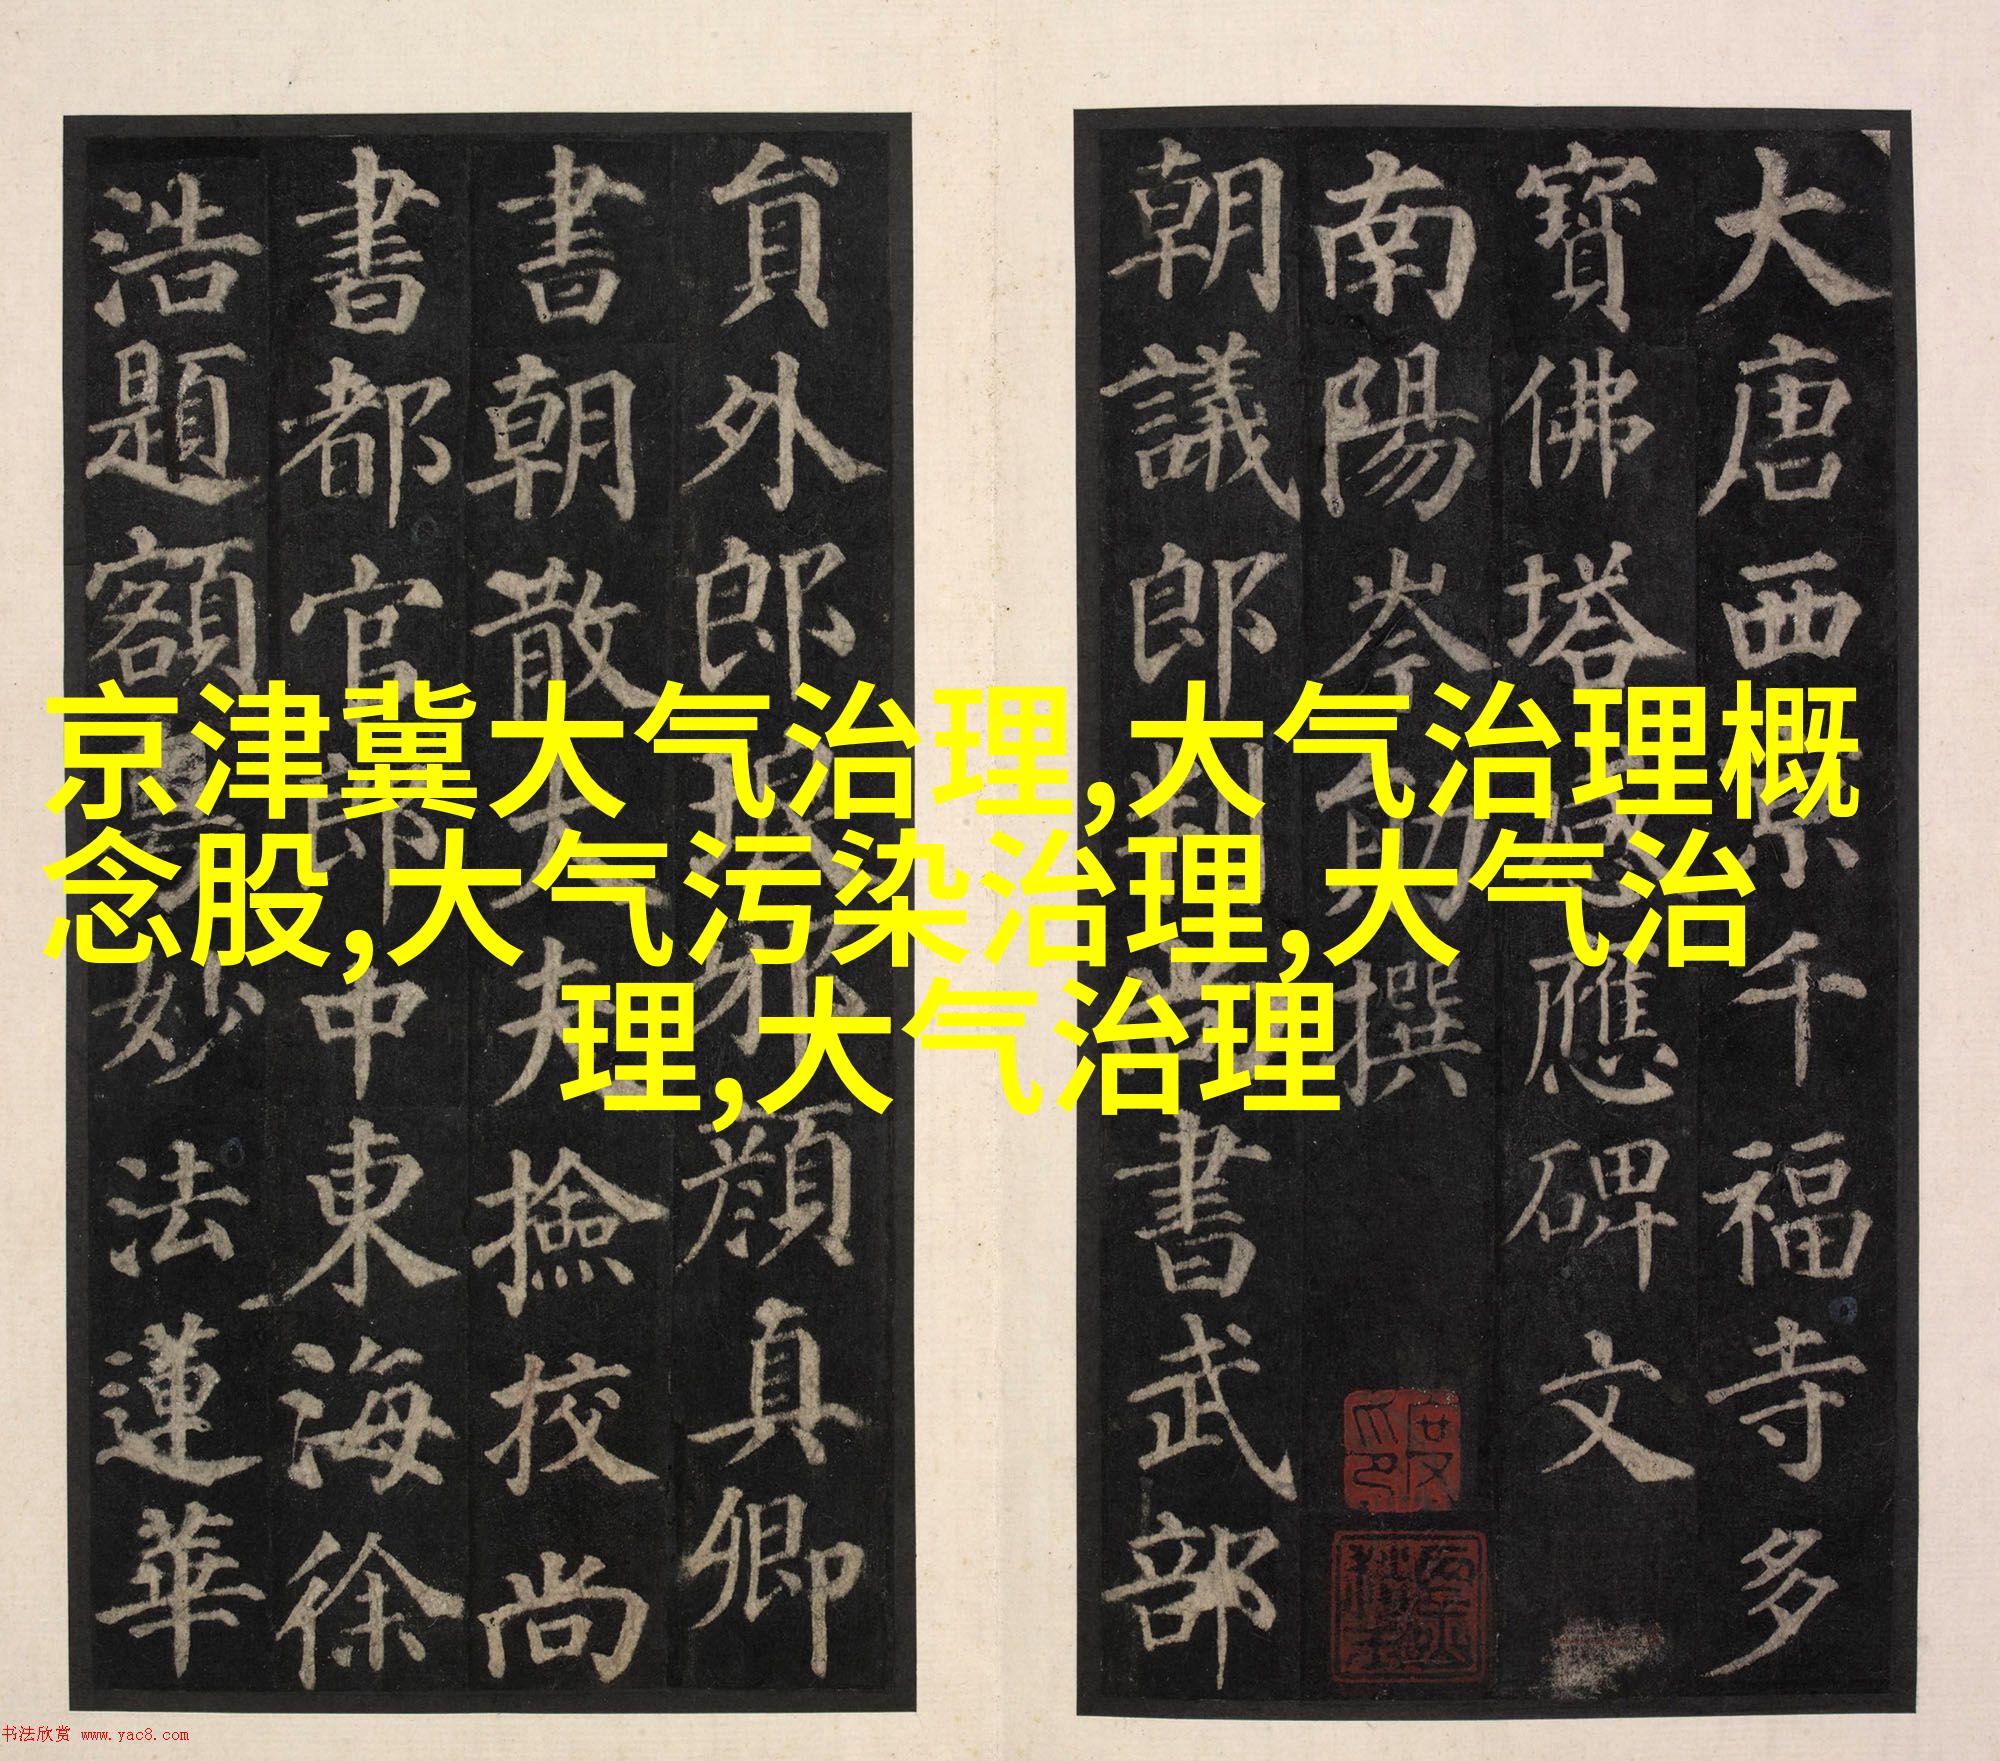 大唐西京千福寺多
寶佛塔感應碑文
南陽岑勛撰
朝議郎判尚書武部
貟外郎琅邪顏真卿
書朝散大夫撿校尚
書都官郎中東海徐
浩題額粵妙法蓮華
京津冀大气治理,大气治理概
念股,大气污染治理,大气治
理,大气治理
书法欣赏 www.yac8.com